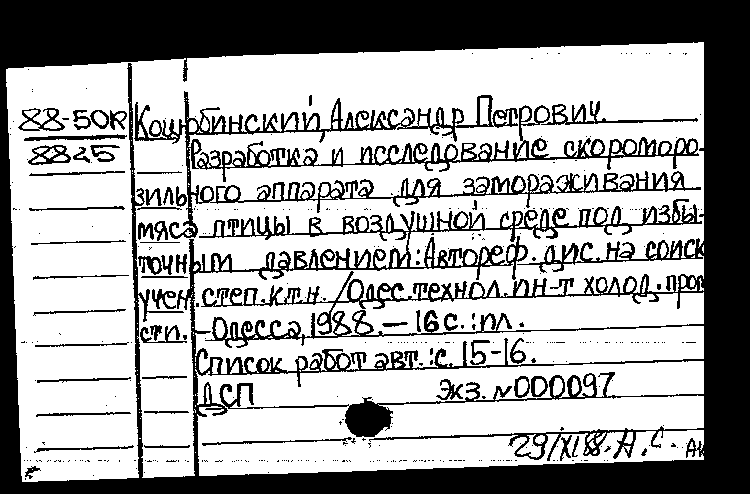 88-50R Коцюбинский, Александр Петрович.
8825 Разработка и исследование скороморо-
зильного аппарата для замораживания
мяса птицы в воздушной среде под избы-
точным давлением: Автореф. дис. на соиск
учен. степ. к.т.н. /Одес. технол. ин-т холод. пром
сти. -Одесса, 1988. — 16 с. : ил.
Список работ авт.: с. 15-16.
ДСП Экз. №000097
29/XI 88. А. С.